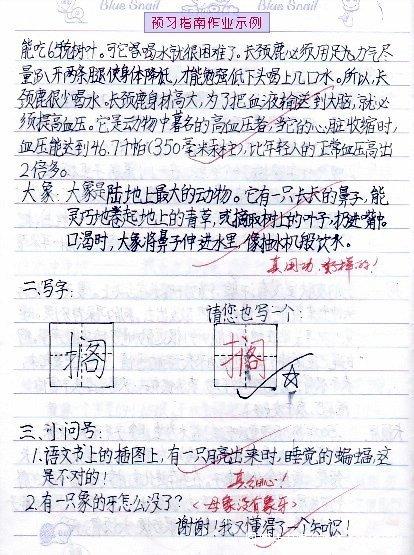 预习指南作业示例
Blue Snail
Blue Snail
能吃6兜树叶。可它喝水就很困难了。长颈鹿必须用足力气尽
量趴开两条腿使身体降低,才能勉强低下头喝上几口水。所以,长
颈鹿很少喝水。长颈鹿身材高大,为了把血液输送到大脑,就必
须提高血压。它是动物中著名的高血压者,当它的心脏收缩时,
血压能达到46.7千帕(350毫米汞柱),比年轻人的正常血压高出
2倍多。
大象:大象是陆地上最大的动物。它有一只长长的鼻子,能
灵巧地卷起地上的青草,或摘取树上的叶子,扔进嘴中。
口渴时,大象将鼻子伸进水里,像抽水机一般饮水。
真用功,好样的!
二、写字:
请您也写一个:
搁
搁
三、小问号:
1.语文书上的插图上,有一只月亮出来时,睡觉的蝙蝠,这
是不对的!
真细心!
2.有一只象的牙怎么没了?(母象没有象牙)
谢谢!我又懂得了一个知识!